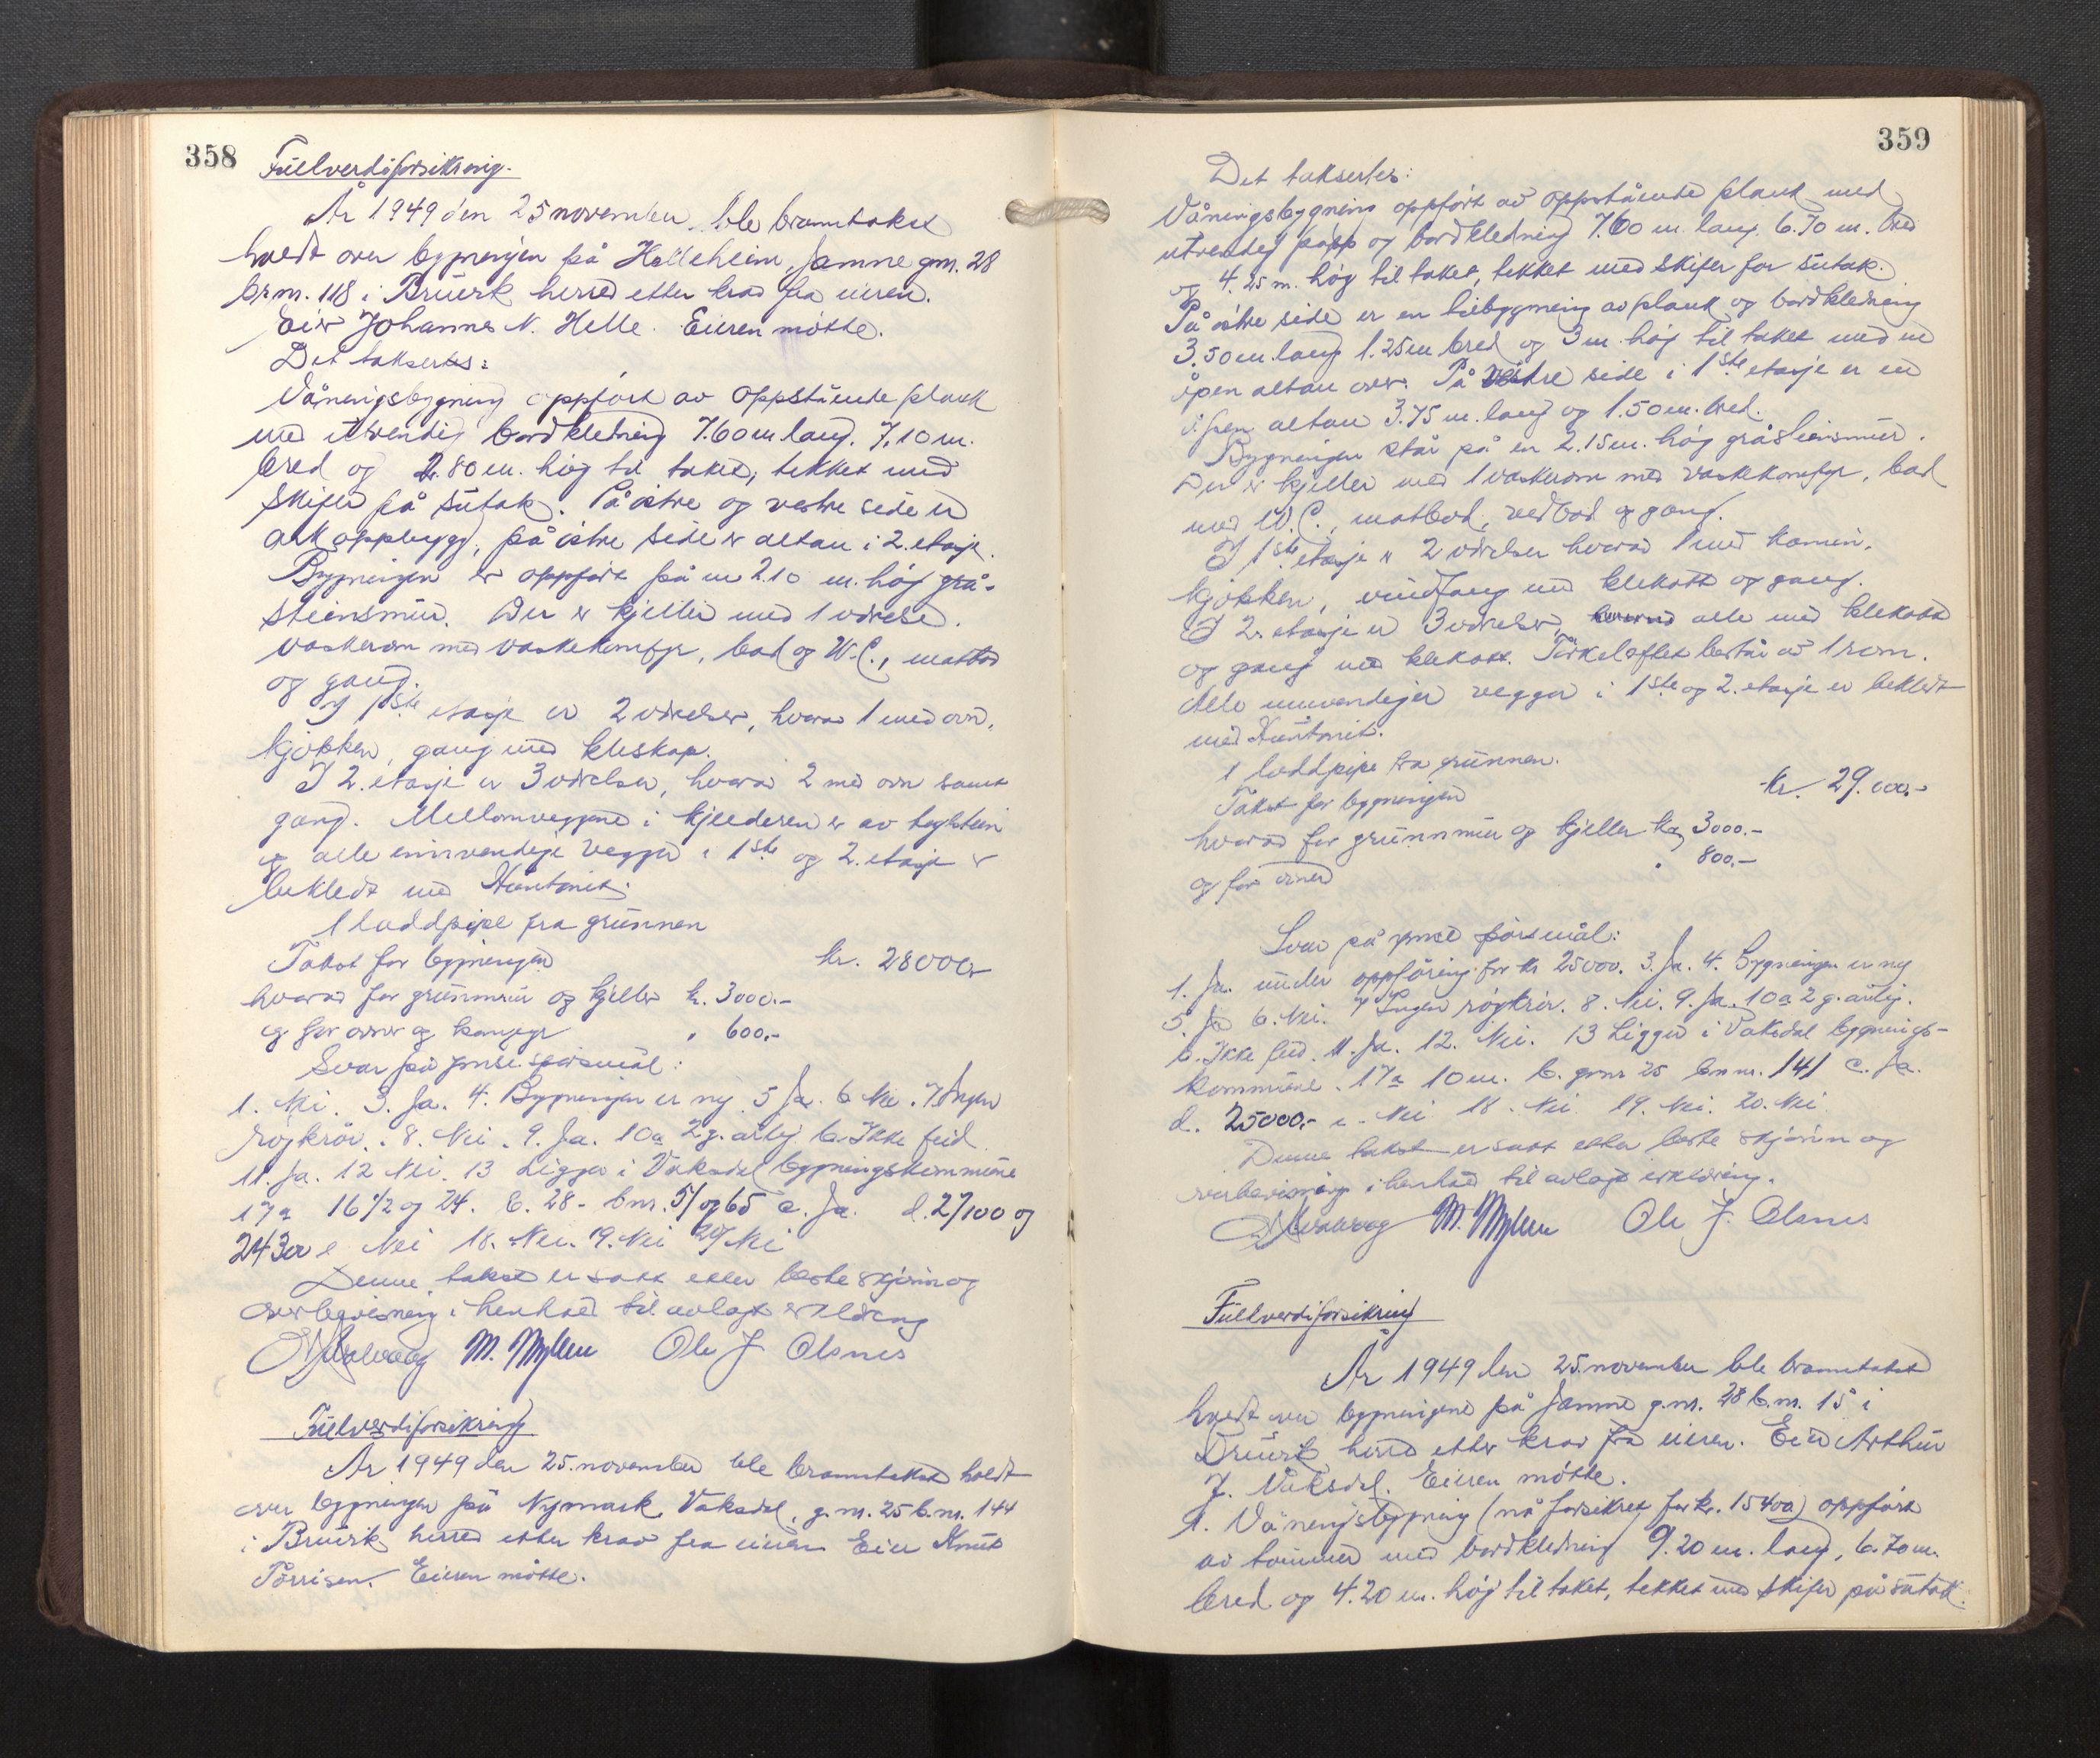 358
Fullverdiforsikring.
År 1949 den 25 november ble branntakst
holdt over bygningen på Helleheim, Jamne gnr. 28
br.nr. 118 i Bruvik herred etter krav fra eieren.
Eier Johannes N. Helle. Eieren møtte.
Det taksertes:
Våningsbygning oppført av oppstående plank
med utvendig bordkledning 7.60 m lang. 7.10 m.
bred og 2.80 m. høg til taket, tekket med
skifer på sutak. På østre og vestre side er
ark oppbygg, på østre side er altan i 2. etasje.
Bygningen er oppført på en 2.10 m. høg grå-
steinsmur. Der er kjeller med 1 værelse.
vaskerom med vaskekomfyr, bad og W.C., matbod
og gang.
I 1ste etasje er 2 værelser, hvorav 1 med ovn.
kjøkken, gang med kleskap.
I 2. etasje er 3 værelser, hvorav 2 med ovn samt
gang. Mellomveggene i kjelderen er av teglstein
og alle innvendige vegger i 1ste og 2. etasje er
bekledt med Huntonit.
1 loddpipe fra grunnen
Takst for bygningen kr. 28000.-
hvorav for grunnmur og kjeller kr. 3000.-
og for ovner og komfyr " 600.-
Svar på ymse spørsmål:
1. Nei. 3. Ja. 4. Bygningen er ny. 5 Ja. 6 Nei. 7 Ingen
røykrør. 8. Nei. 9. Ja. 10a 2 g. årlig. b. Ikke feid.
11. Ja. 12 Nei. 13 Ligger i Vaksdal bygningskommune
17a 16 1/2 og 24. b. 28 - bnr. 51 og 65 c. Ja. d. 27100 og
24300 e Nei 18. Nei. 19. Nei 20 Nei
Denne takst er satt etter beste skjønn og
overbevisning i henhold til avlagt erklæring
M. Myllen Ole J. Olsnes
Fullverdiforsikring
År 1949 den 25. november ble branntakst holdt
over bygningen på Nymark, Vaksdal, g.nr. 25 b.nr. 144
i Bruvik herred etter krav fra eieren Eier Knut
Tørrisen. Eieren møtte.
359
Det taksertes:
Våningsbygning oppført av oppstående plank med
utvendig papp og bordkledning 7.60 m. lang. 6.70 m. bred
og 4.25 m. høg til taket, tekket med skifer for sutak.
På østre side er en tilbygning av plank og bordkledning
3.50 m. lang 1.25 m bred og 3 m. høg til taket med en
åpen altan over. På vestre side i 1ste etasje er en
åpen altan 3.75 m. lang og 1.50 m. bred.
Bygningen står på en 2.15 m. høg gråsteinsmur.
Der er kjeller med 1 vaskerom med vaskekomfyr, bad
med W.C., matbod, vedbod og gang.
I 1ste etasje er 2 værelser hvorav 1 med kamin,
kjøkken, vindfang med klekott og gang.
I 2. etasje er 3 værelser, alle med klekott
og gang med klekott. Tørkeloftet består av 1 rom.
Alle innvendiger vegger i 1ste og 2. etasje er bekledt
med Huntonit.
1 loddpipe fra grunnen.
Takst for bygningen kr. 29.000.-
hvorav for grunnmur og kjeller kr. 3000.-
og for ovner " 800.-
Svar på ymse spørsmål:
1. Ja. under oppføring for kr 25000. 3. Ja. 4. Bygningen er ny
5. Ja 6. Nei. 7 Ingen røykrør. 8. Nei. 9. Ja. 10a 2 g. årlig.
b. Ikke feid. 11. Ja. 12. Nei. 13 Ligger i Vaksdal bygnings-
kommune. 17a 10 m. b. gnr 25 bnr. 141 c. Ja.
d. 25000.- e. Nei 18. Nei 19. Nei. 20. Nei
Denne takst er satt etter beste skjønn og
overbevisning i henhold til avlagt erklæring.
M. Myllen Ole J. Olsnes
Fullverdiforsikring
År 1949 den 25. november ble branntakst
holdt over bygningene på Jamne g.nr. 28 b.nr. 15 i
Bruvik herred etter krav fra eieren. Eier Arthur
J. Vaksdal. Eieren møtte.
1. Våningsbygning (nå forsikret for kr. 15400) oppført
av tømmer med bordkledning 9.20 m. lang, 6.70 m.
bred og 4.20 m. høg til taket, tekket med skifer på sutak.